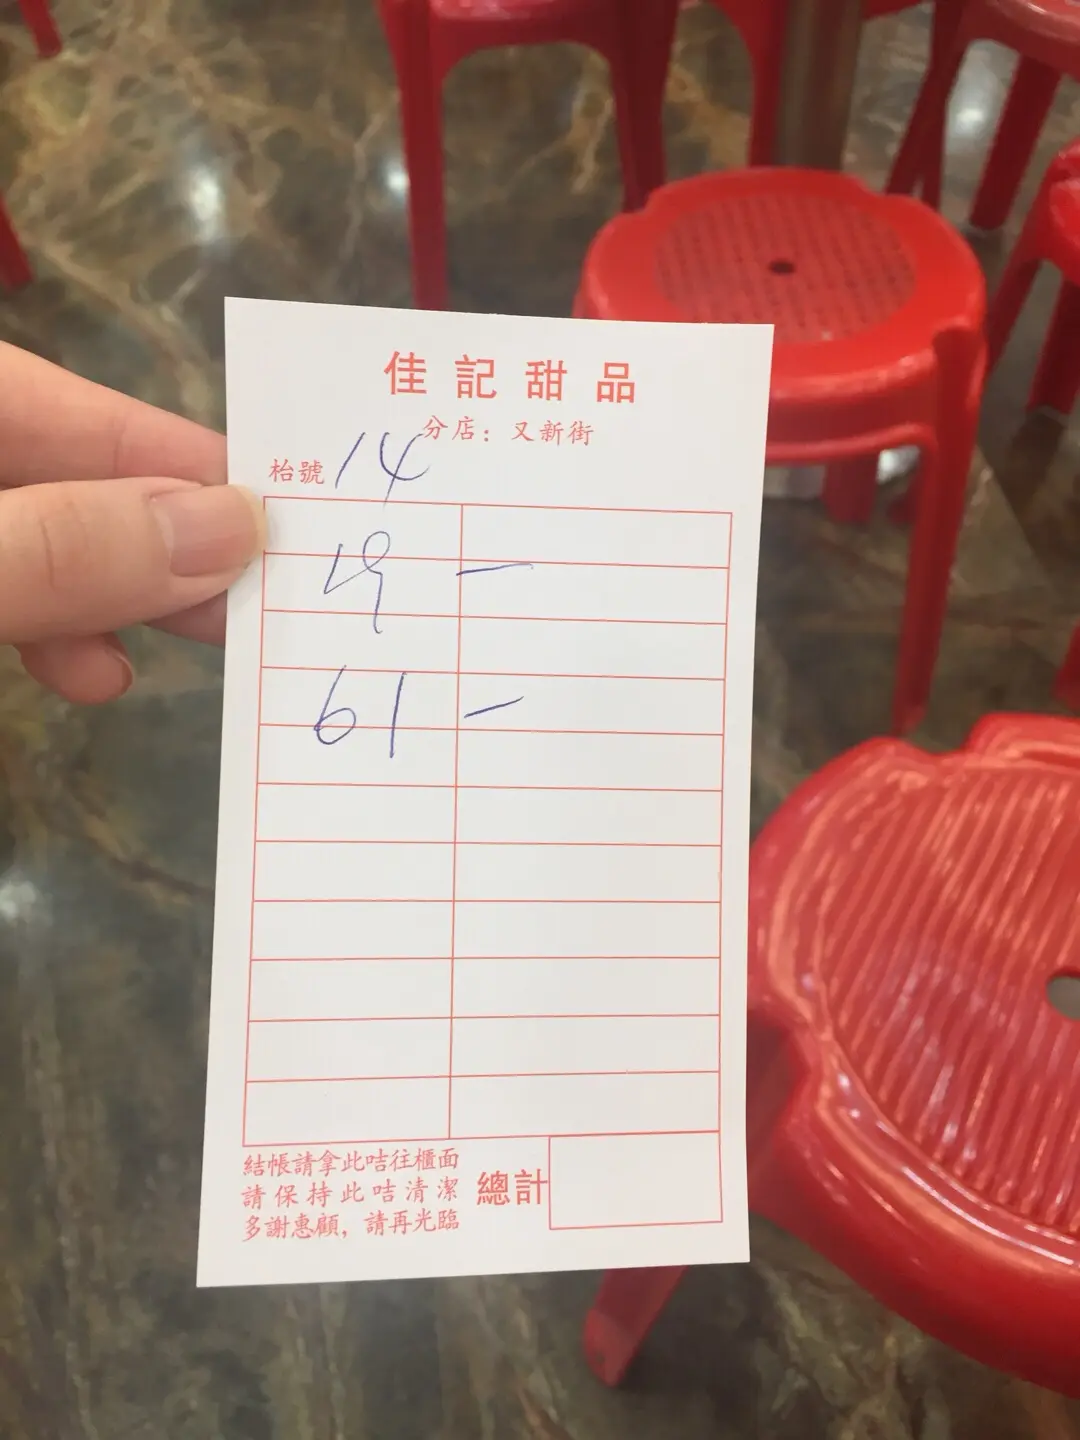 佳記甜品
分店：又新街
枱號 14
19 一
61 一
結帳請拿此咭往櫃面
請保持此咭清潔
多謝惠顧，請再光臨
總計